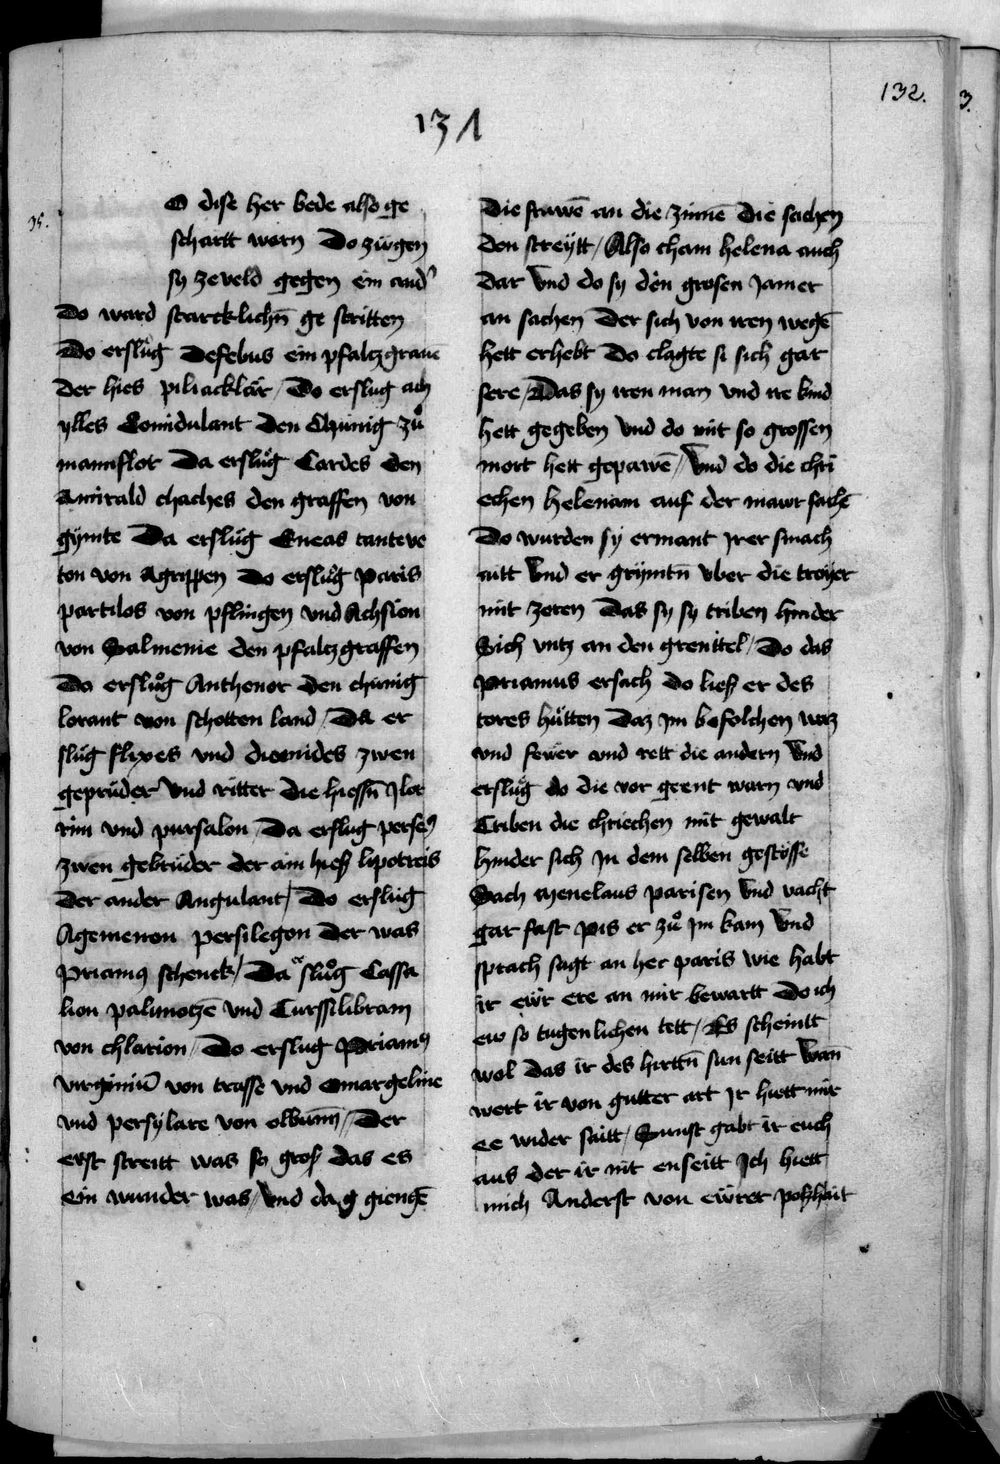 132.
3.
131
35.
O dise her bede also ge
schartt warn Do zugen
sy zeveld gegen ein and'
Do ward starcklichn̄ ge stritten
Do erslůg Defebus ein pfaltzgrauē
Der hies piliacklär / Do erslug ach
ylles Comidulant Den Chünig zů
mannflot Da erslůg Cardes den
Amirald chaches den graffen von
gÿmte Da erslüg Eneas tanteve
ton von Agrippen Do erslůg Paris
partilos von pflingen vnd Achsion
von Salmenie den pfaltzgraffen
Do erslůg Anthenor den chünig
lorant von schotten land / Da er
slüg flixes vnd diomides zwen
geprüder vnd ritter die hiessn̄ Jlot
rim vnd pursalon / Da erslug perse9
zwen gebrüder der ain hieß lipotreis
Der ander Angulant / Do erslüg
Agemenon persilegon Der was
priam9 schenck / Da slůg Cassa
lion palimotzē vnd Curssilibram
von chlarion / Do erslug Priam9
virginiū von trasse vnd Omargeline
vnd persylare von olbūm // Der
erst streitt was so groß das es
ein wunder was // vnd da g giengē
Die frawē an die zinnē die sachen
den streÿtt / Also cham helena auch
dar vnd do sy den grosen Jamer
an sachen Der sich von iren wegē
hett erhebt Do clagte si sich gar
sere / Das sy iren man vnd ire kind
hett gegeben vnd do mit so grossen
mort hett geparnē // vnd do die chri
echen helenam auf der mawr sachē
Do wurden sy ermant Jrer smach
aitt vnd er grÿmtn̄ vber die troyer
mit zoren Das sy sy triben hinder
Sich vntz an den grenttel / Do das
Priamus ersach do ließ er des
tores hütten Daz Jm befolchen waz
vnd fewer vnd rett die andern vnd
erslůg do die vor geent warn vnd
Triben die chriechen mit gewalt
hinder sich Jn dem selben gestösse
Sach Menelaus parisen vnd vacht
gar fast pis er zů Jm kam vnd
sprach sagt an her paris wie habt
ir ewr ere an mir bewartt Do ich
ew so tugenlichen tett / Es scheintt
wol das ir des hirttn̄ sun seitt wan̄
wert ir von gutter art Jr hiett mir
ee wider saitt / Sunst gabt ir euch
aus der ir nit enseitt Ich hiett
mich Anderst von ewrer poßhait